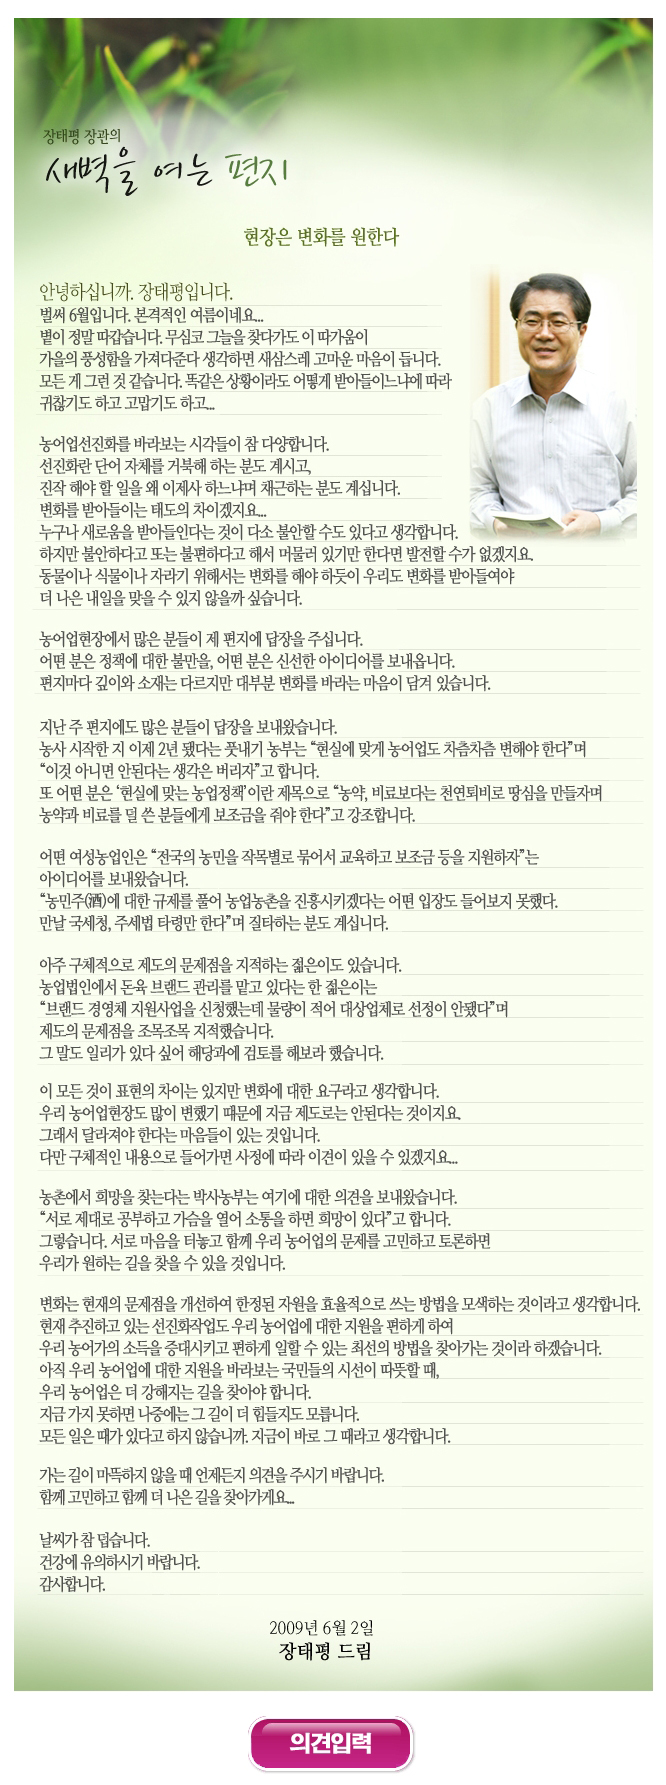 장태평 장관의
새벽을 여는 편지
현장은 변화를 원한다
안녕하십니까. 장태평입니다.
벌써 6월입니다. 본격적인 여름이네요...
볕이 정말 따갑습니다. 무심코 그늘을 찾다가도 이 따가움이
가을의 풍성함을 가져다준다 생각하면 새삼스레 고마운 마음이 듭니다.
모든 게 그런 것 같습니다. 똑같은 상황이라도 어떻게 받아들이느냐에 따라
귀찮기도 하고 고맙기도 하고...
농어업선진화를 바라보는 시각들이 참 다양합니다.
선진화란 단어 자체를 거북해 하는 분도 계시고,
진작 해야 할 일을 왜 이제사 하느냐며 채근하는 분도 계십니다.
변화를 받아들이는 태도의 차이겠지요...
누구나 새로움을 받아들인다는 것이 다소 불안할 수도 있다고 생각합니다.
하지만 불안하다고 또는 불편하다고 해서 머물러 있기만 한다면 발전할 수가 없겠지요.
동물이나 식물이나 자라기 위해서는 변화를 해야 하듯이 우리도 변화를 받아들여야
더 나은 내일을 맞을 수 있지 않을까 싶습니다.
농어업현장에서 많은 분들이 제 편지에 답장을 주십니다.
어떤 분은 정책에 대한 불만을, 어떤 분은 신선한 아이디어를 보내옵니다.
편지마다 깊이와 소재는 다르지만 대부분 변화를 바라는 마음이 담겨 있습니다.
지난 주 편지에도 많은 분들이 답장을 보내왔습니다.
농사 시작한 지 이제 2년 됐다는 풋내기 농부는 “현실에 맞게 농어업도 차츰차츰 변해야 한다”며
“이것 아니면 안된다는 생각은 버리자”고 합니다.
또 어떤 분은 ‘현실에 맞는 농업정책’이란 제목으로 “농약, 비료보다는 천연퇴비로 땅심을 만들자며
농약과 비료를 덜 쓴 분들에게 보조금을 줘야 한다”고 강조합니다.
어떤 여성농업인은 “전국의 농민을 작목별로 묶어서 교육하고 보조금 등을 지원하자”는
아이디어를 보내왔습니다.
“농민주(酒)에 대한 규제를 풀어 농업농촌을 진흥시키겠다는 어떤 입장도 들어보지 못했다.
만날 국세청, 주세법 타령만 한다”며 질타하는 분도 계십니다.
아주 구체적으로 제도의 문제점을 지적하는 젊은이도 있습니다.
농업법인에서 돈육 브랜드 관리를 맡고 있다는 한 젊은이는
“브랜드 경영체 지원사업을 신청했는데 물량이 적어 대상업체로 선정이 안됐다”며
제도의 문제점을 조목조목 지적했습니다.
그 말도 일리가 있다 싶어 해당과에 검토를 해보라 했습니다.
이 모든 것이 표현의 차이는 있지만 변화에 대한 요구라고 생각합니다.
우리 농어업현장도 많이 변했기 때문에 지금 제도로는 안된다는 것이지요.
그래서 달라져야 한다는 마음들이 있는 것입니다.
다만 구체적인 내용으로 들어가면 사정에 따라 이견이 있을 수 있겠지요...
농촌에서 희망을 찾는다는 박사농부는 여기에 대한 의견을 보내왔습니다.
“서로 제대로 공부하고 가슴을 열어 소통을 하면 희망이 있다”고 합니다.
그렇습니다. 서로 마음을 터놓고 함께 우리 농어업의 문제를 고민하고 토론하면
우리가 원하는 길을 찾을 수 있을 것입니다.
변화는 현재의 문제점을 개선하여 한정된 자원을 효율적으로 쓰는 방법을 모색하는 것이라고 생각합니다.
현재 추진하고 있는 선진화작업도 우리 농어업에 대한 지원을 편하게 하여
우리 농어가의 소득을 증대시키고 편하게 일할 수 있는 최선의 방법을 찾아가는 것이라 하겠습니다.
아직 우리 농어업에 대한 지원을 바라보는 국민들의 시선이 따뜻할 때,
우리 농어업은 더 강해지는 길을 찾아야 합니다.
지금 가지 못하면 나중에는 그 길이 더 힘들지도 모릅니다.
모든 일은 때가 있다고 하지 않습니까. 지금이 바로 그 때라고 생각합니다.
가는 길이 마뜩하지 않을 때 언제든지 의견을 주시기 바랍니다.
함께 고민하고 함께 더 나은 길을 찾아가게요...
날씨가 참 덥습니다.
건강에 유의하시기 바랍니다.
감사합니다.
2009년 6월 2일
장태평 드림
의견입력